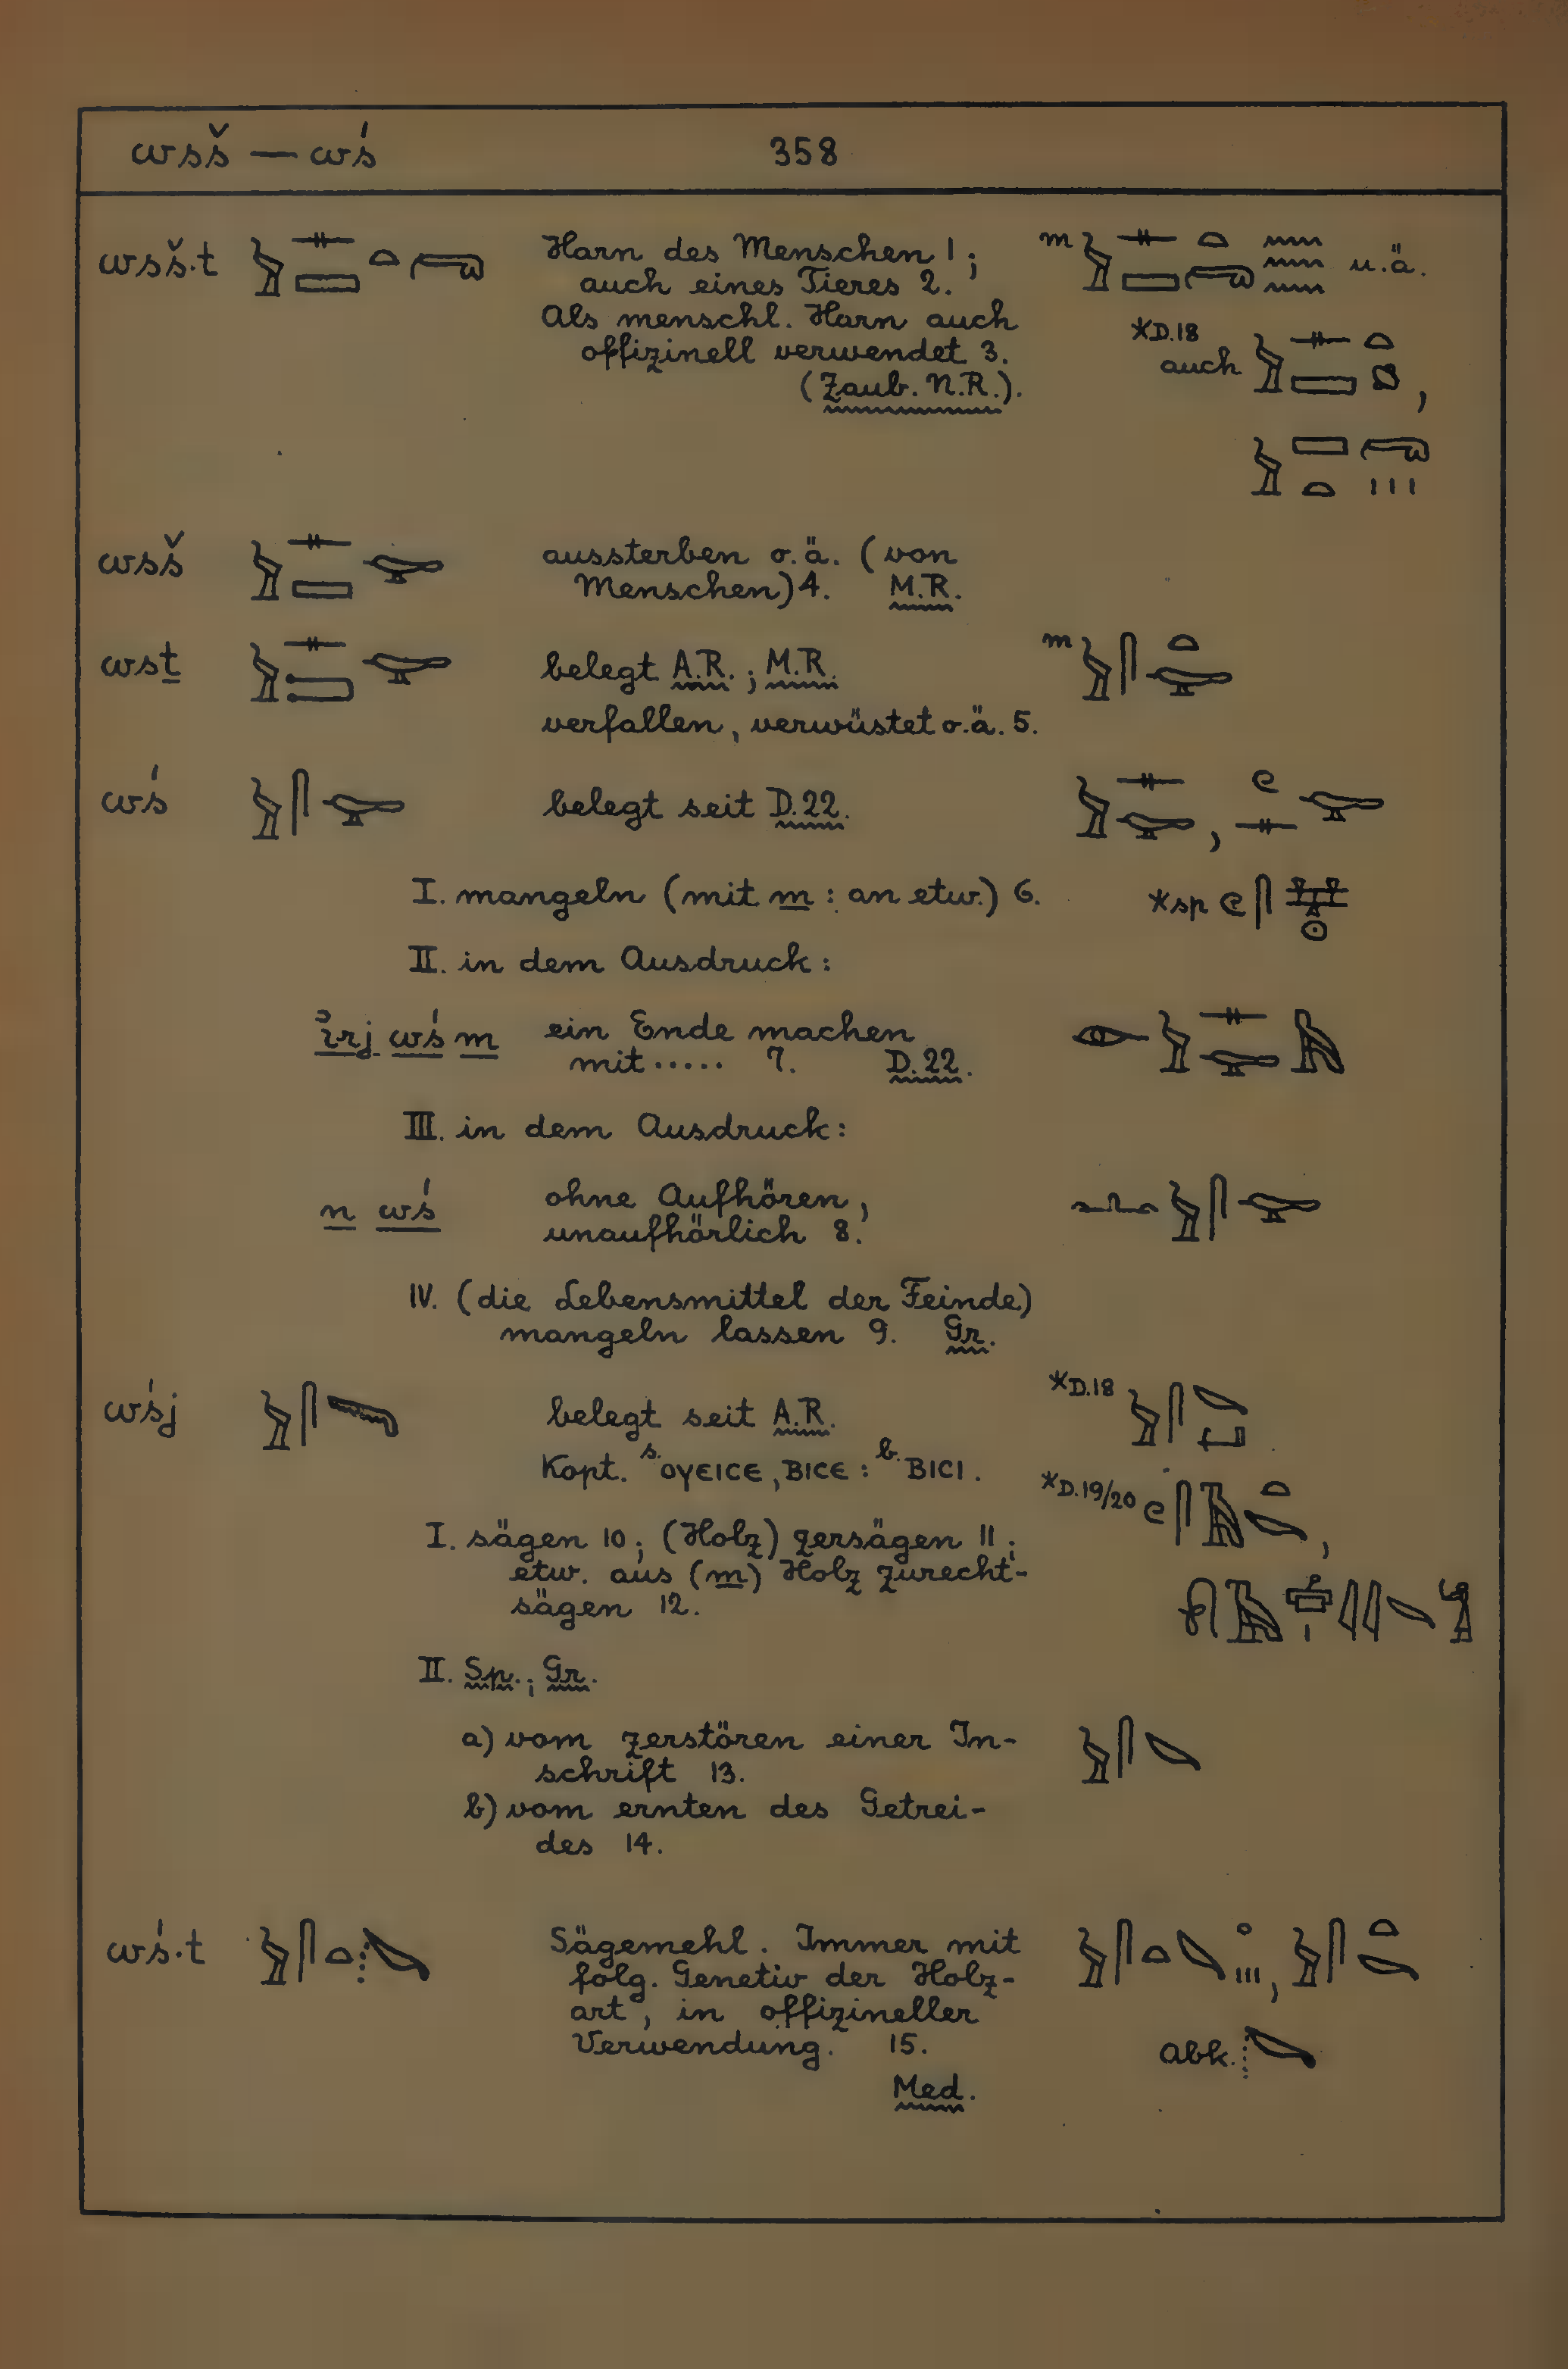 wsš — wś 358
wsš.t Harn des Menschen 1;
auch eines Tieres 2. m u.ä.
Als menschl. Harn auch
offizinell verwendet 3. *D.18 auch ,
(Zaub. N.R.).
wsš aussterben o.ä. (von
Menschen) 4. M.R.
wsṯ belegt A.R.; M.R. m
verfallen, verwüstet o.ä. 5.
wś belegt seit D.22. ,
I. mangeln (mit m : an etw.) 6. *sp
II. in dem Ausdruck:
ỉrj wś m ein Ende machen
mit ..... 7. D.22.
III. in dem Ausdruck:
n wś ohne Aufhören,
unaufhörlich 8.
IV. (die Lebensmittel der Feinde)
mangeln lassen 9. Gr.
wśj belegt seit A.R. *D.18
Kopt. s. ⲟⲩⲉⲓⲥⲉ, ⲃⲓⲥⲉ : b. ⲃⲓⲥⲓ. *D.19/20 ,
I. sägen 10; (Holz) zersägen 11;
etw. aus (m) Holz zurecht-
sägen 12.
II. Sp.; Gr.
a) vom zerstören einer In-
schrift 13.
b) vom ernten des Getrei-
des 14.
wś.t Sägemehl. Immer mit ,
folg. Genetiv der Holz-
art, in offizineller
Verwendung. 15. abk.
Med.